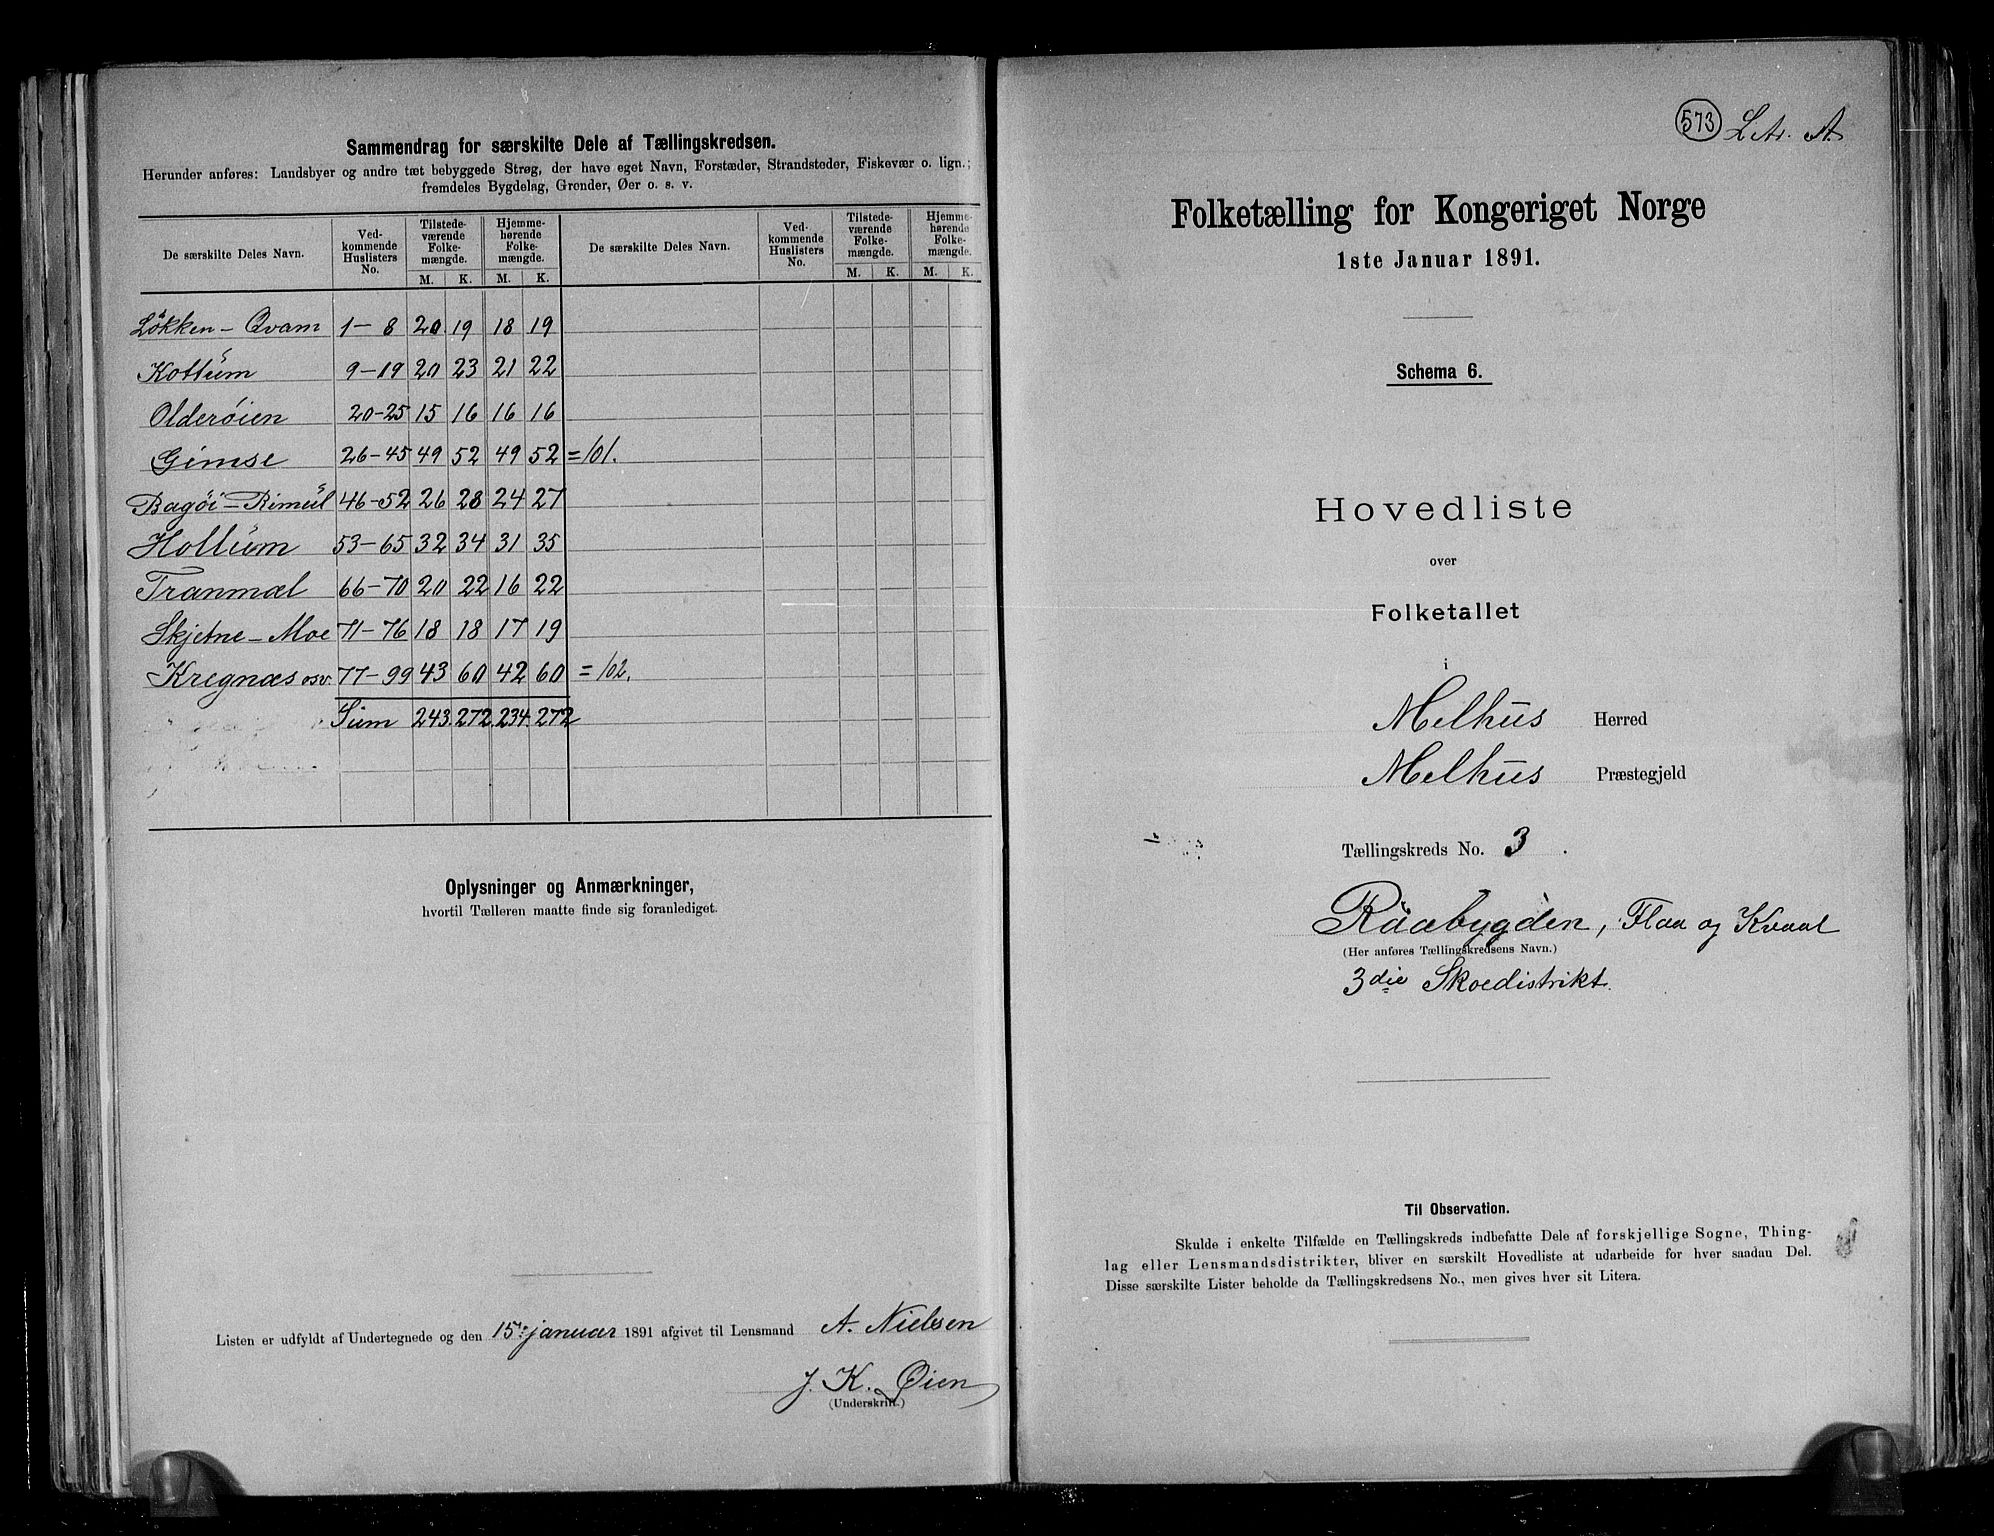 Sammendrag for særskilte Dele af Tællingskredsen.
Herunder anføres: Landsbyer og andre tæt bebyggede Strøg, der have eget Navn, Forstæder, Strandsteder, Fiskevær o. lign.;
fremdeles Bygdelag, Grender, Øer o. s. v.
De særskilte Deles Navn. Vedkommende Huslisters No. Tilstedeværende Folkemængde. M. K. Hjemmehørende Folkemængde. M. K. De særskilte Deles Navn. Vedkommende Huslisters No. Tilstedeværende Folkemængde. M. K. Hjemmehørende Folkemængde. M. K.
Løkken - Qvam 1 - 8 20 19 18 19
Kottum 9 - 19 20 23 21 22
Olderøien 20 - 25 15 16 16 16
Gimse 26 - 45 49 52 49 52 = 101.
Bagøi - Rimul 46 - 52 26 28 24 27
Hollum 53 - 65 32 34 31 35
Tranmæl 66 - 70 20 22 16 22
Skjetne - Moe 71 - 76 18 18 17 19
Kregnæs osv. 77 - 99 43 60 42 60 = 102.
Sum 243. 272. 234. 272
Oplysninger og Anmærkninger,
hvortil Tælleren maatte finde sig foranlediget.
Listen er udfyldt af Undertegnede og den 15. januar 1891 afgivet til Lensmand A. Nielsen
J. K. Øien
(Underskrift.)
573 Litr. A
Folketælling for Kongeriget Norge
1ste Januar 1891.
Schema 6.
Hovedliste
over
Folketallet
i
Melhus Herred
Melhus Præstegjeld
Tællingskreds No. 3.
Raabygden, Flaa og Kvaal
(Her anføres Tællingskredsens Navn.)
3die Skoledistrikt.
Til Observation.
Skulde i enkelte Tilfælde en Tællingskreds indbefatte Dele af forskjellige Sogne, Thing-
lag eller Lensmandsdistrikter, bliver en særskilt Hovedliste at udarbeide for hver saadan Del.
Disse særskilte Lister beholde da Tællingskredsens No., men gives hver sit Litera.